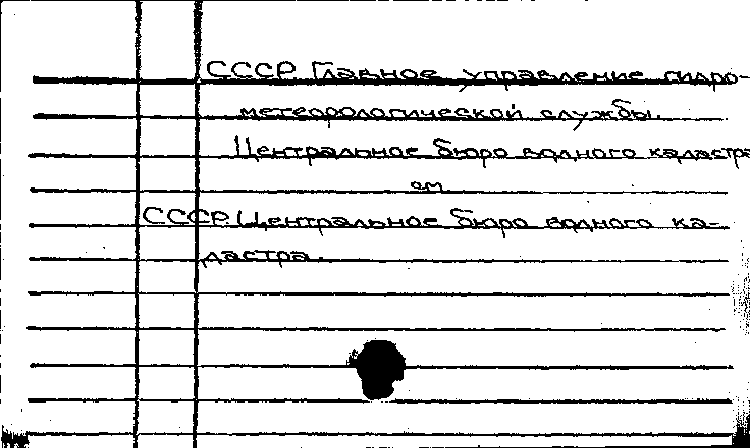 СССР. Главное управление гидро-
метеорологической службы.
Центральное бюро водного кадастра
см.
СССР. Центральное бюро водного ка-
дастра.